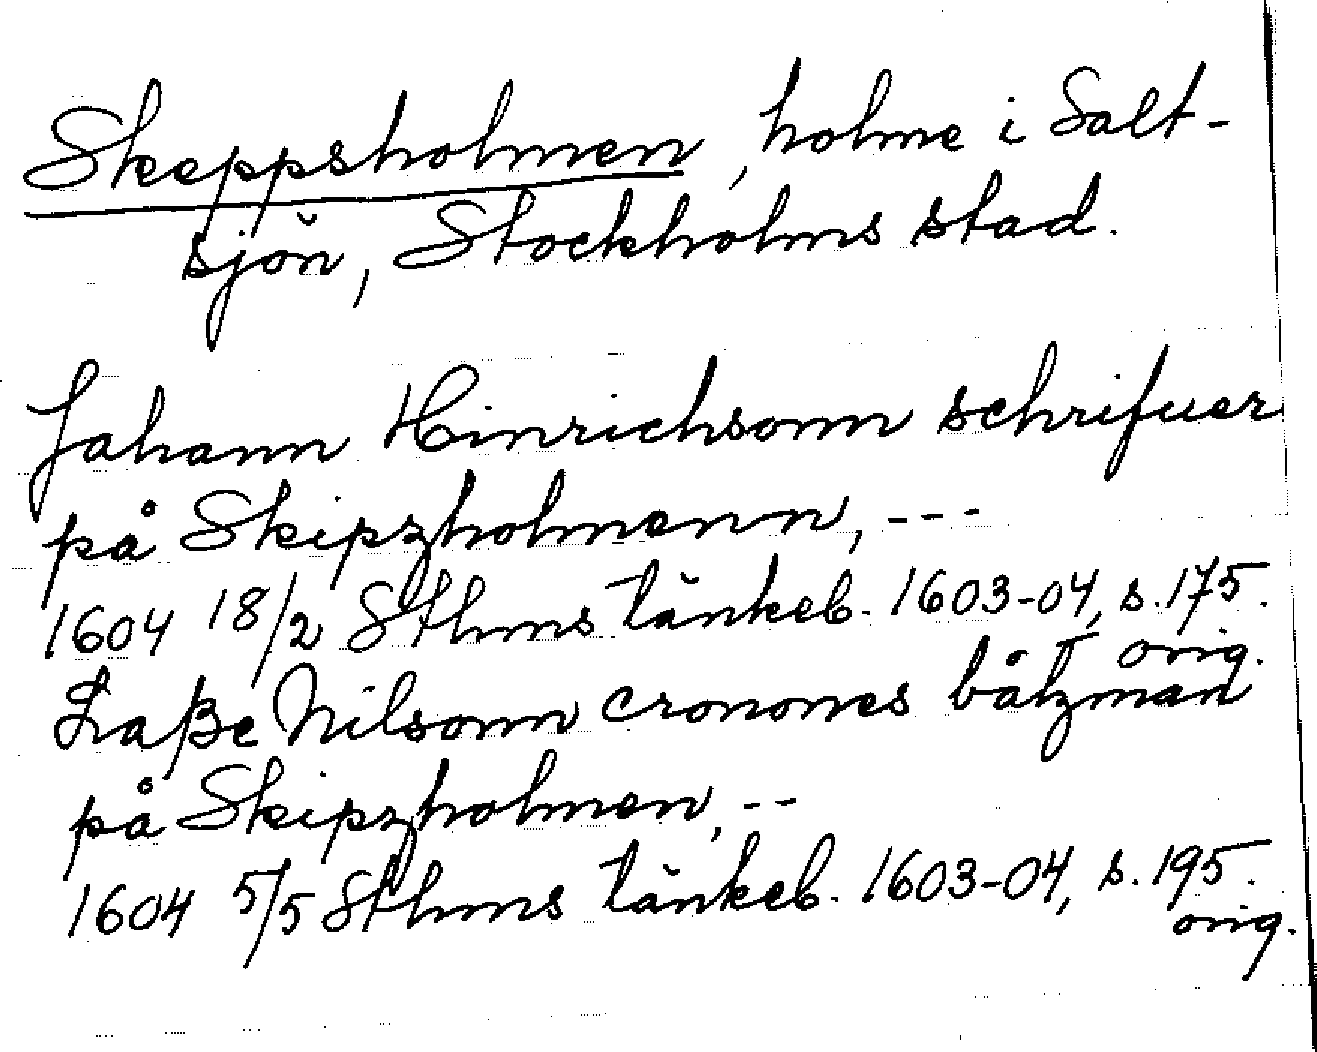 Skeppsholmen, holme i Salt-
sjön, Stockholms stad.
Johann Hinrichsonn schrifuer
på Skipzholmenn, ---
1604 18/2 Sthms tänkeb. 1603-04, s. 175.
orig.
Laße Nilsonn cronones båtzman
på Skipzholmen, --
1604 5/5 Sthms tänkeb. 1603-04, s. 195.
orig.